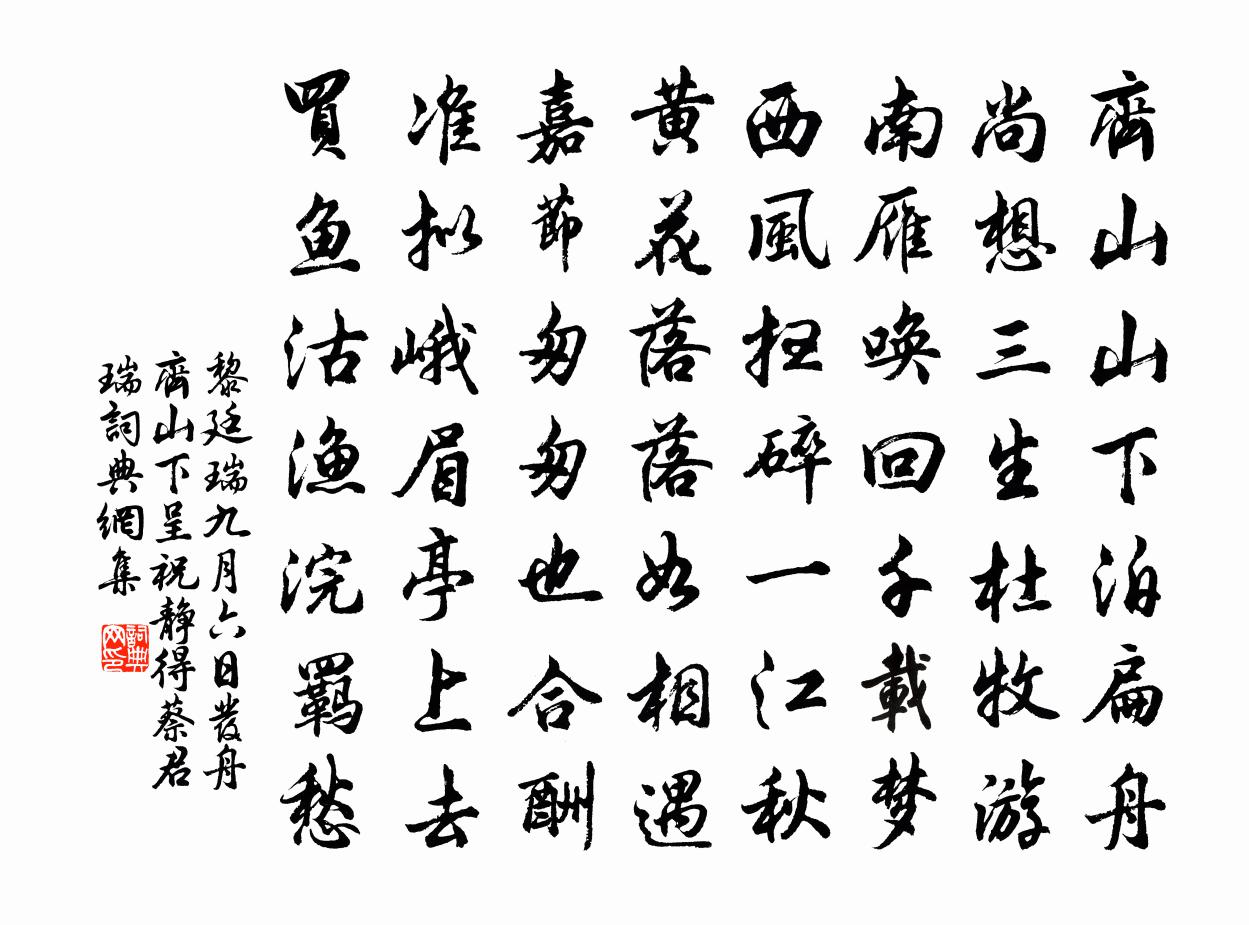 齊山山下泊扁舟
尚想三生杜牧游
南雁喚回千載梦
西風扫碎一江秋
黄花落落如相遇
嘉節匆匆也合酬
准拟峨眉亭上去
買鱼沽渔浣羁愁
黎廷瑞九月六日發舟
齊山下呈祝靜得蔡君
瑞詞典網集
詞典网印